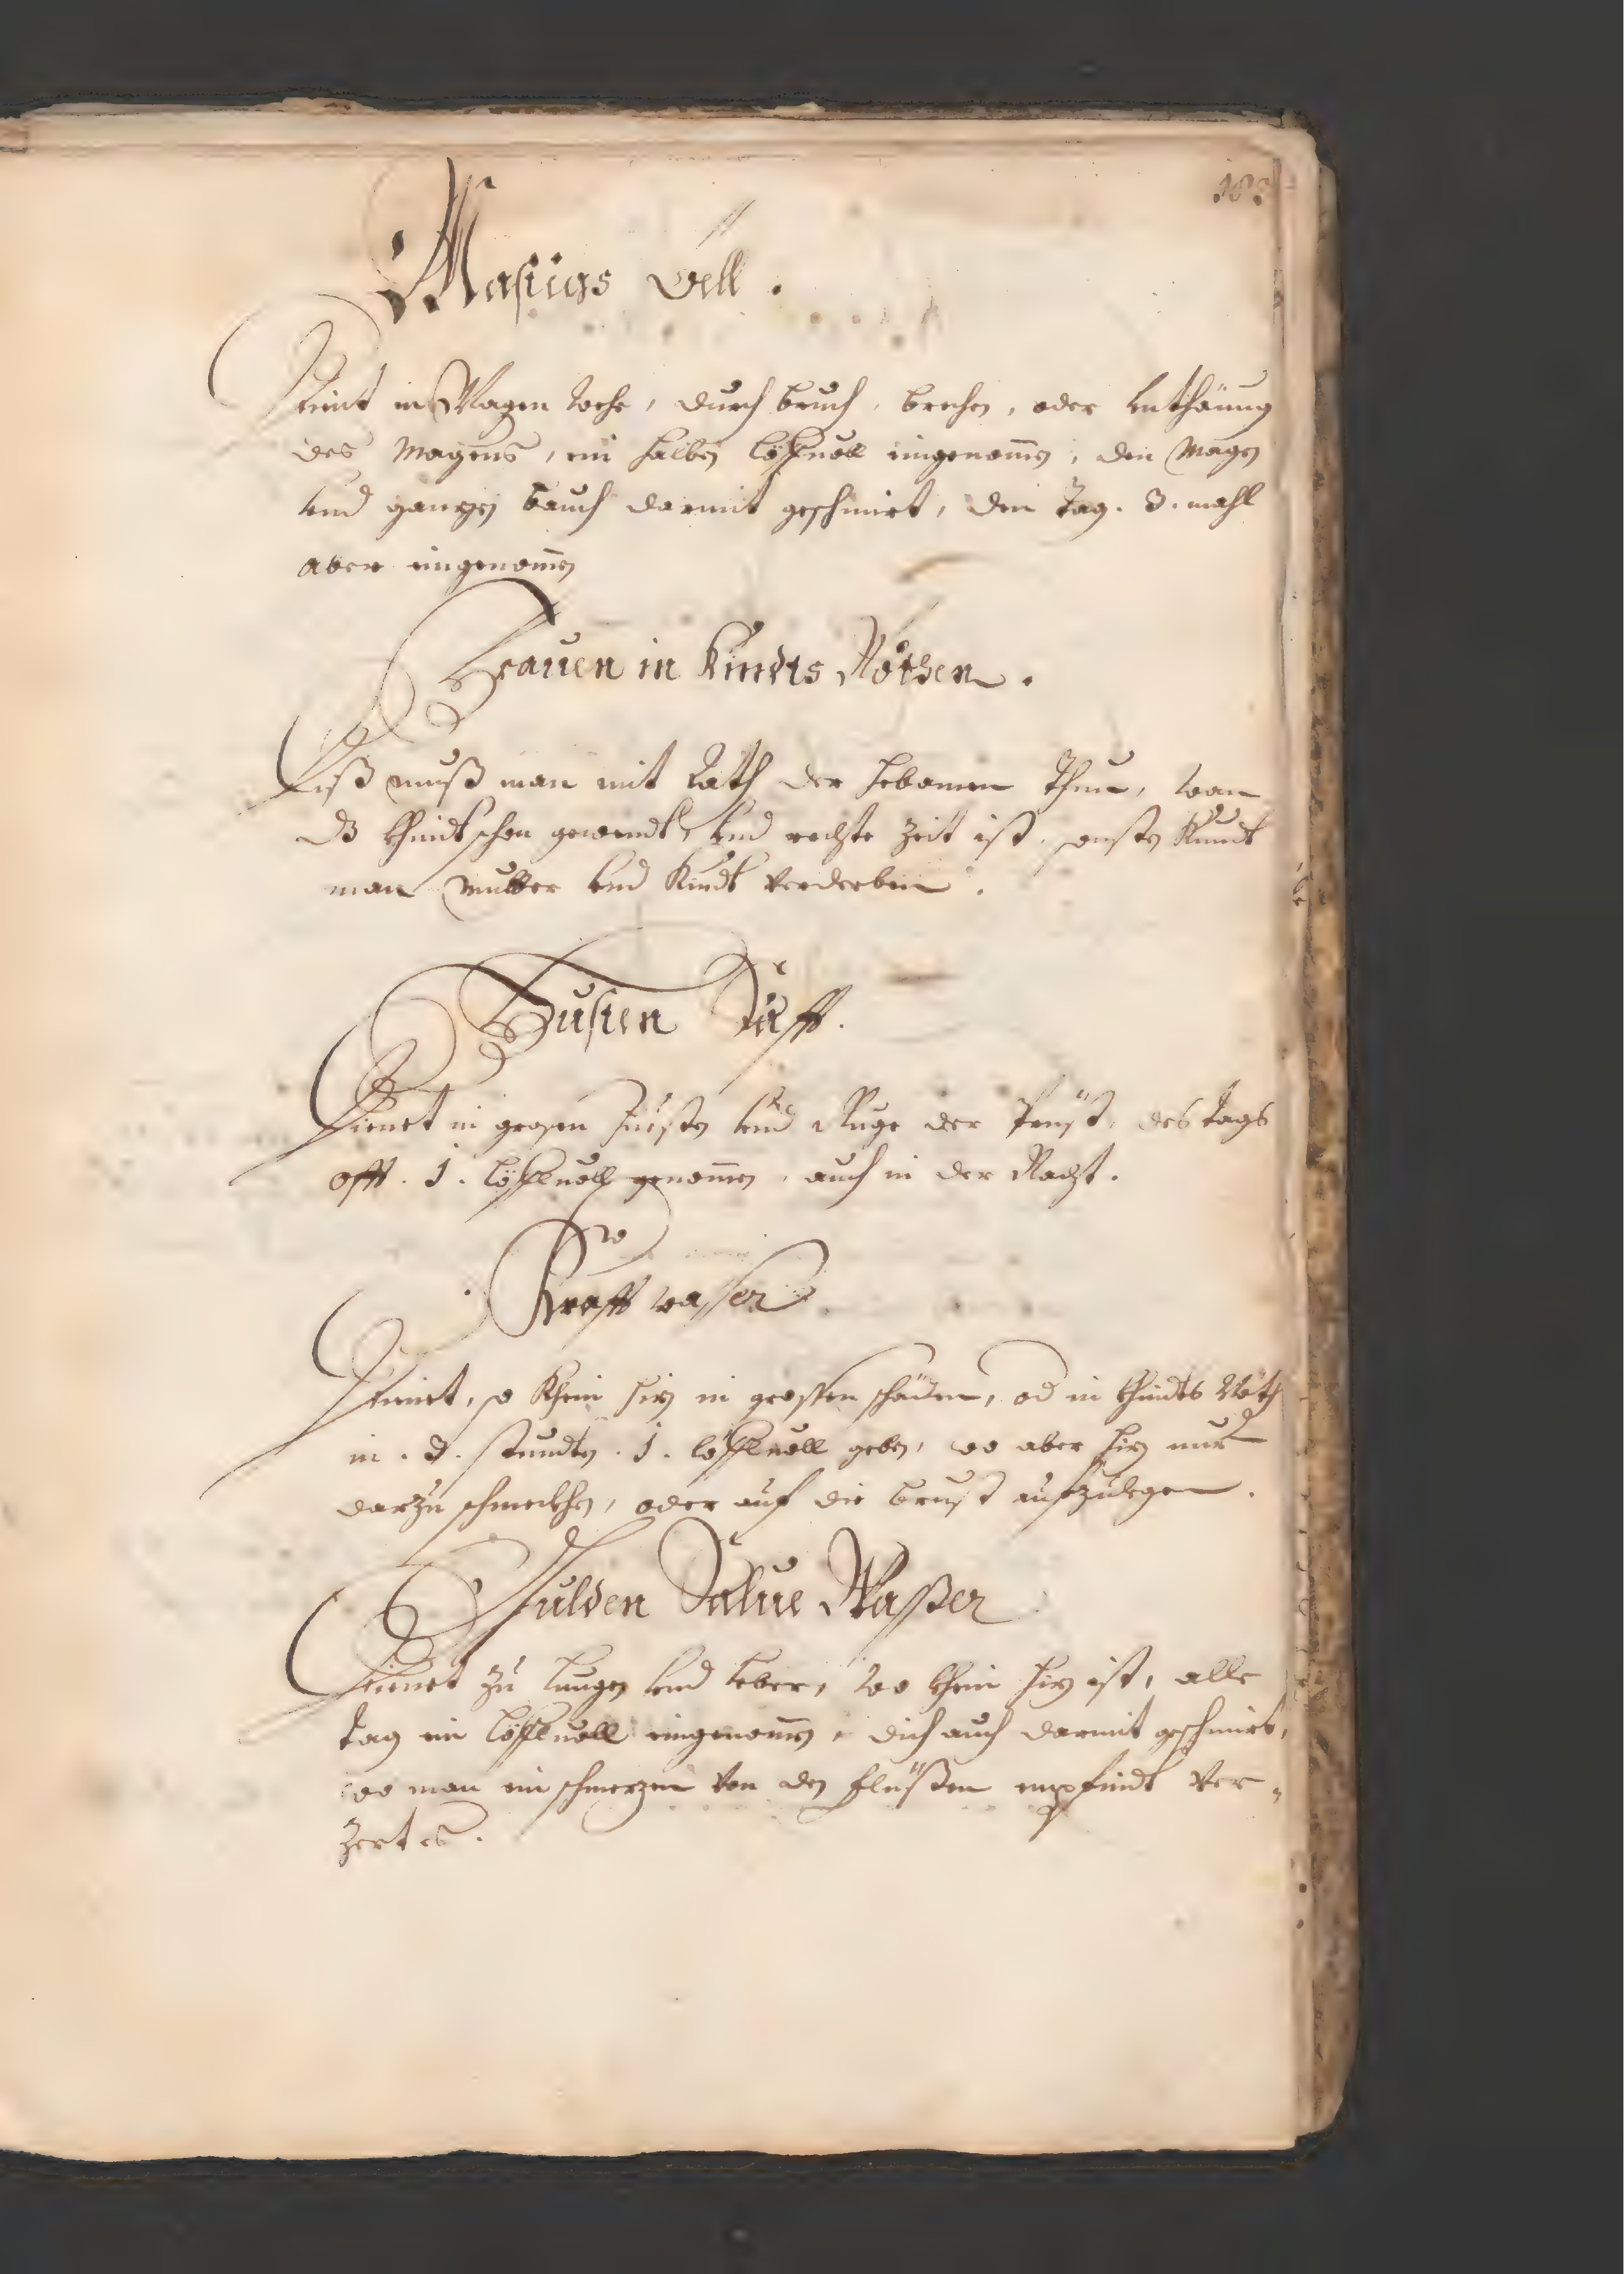 183
Masiigs Oell.
Dient in Magen wehe, durch bruch, brechen, oder Unthäuung
des Magens, ein halben löfluoll eingenomen, den Magen
und gantzen bauch darmit geschmirt, den Tag. 3. mahl
aber eingenomen
Frauen in Kindts Nöthen.
Diß muß man mit Rath der hebamen thun, wan
dz Khindt schon gewendt, und rechte Zeit ist, sonsten Kundt
man Mutter und Kindt verderben.
Husten Safft.
Dienet in grosen Husten und Ruge der Prust, des tags
offt. 1. löfluoll genomen, auch in der Nacht.
Krafft wasser
Dienet, so Khein hiz in grossen schäden, od in Khindts Nöth
in. 3. stundten. 1. löffluoll geben, wo aber hiz nur
darzu schmeckhen, oder auf die brust aufzulegen.
Gulden Salue Waßer
Dienet zu Lungen und Leber, wo Khein hiz ist, alle
tag ein löfluoll eingenomen, dich auch darmit geschmirt,
wo man ein schmerzen von den flüßen empfindt ver-
zert es.